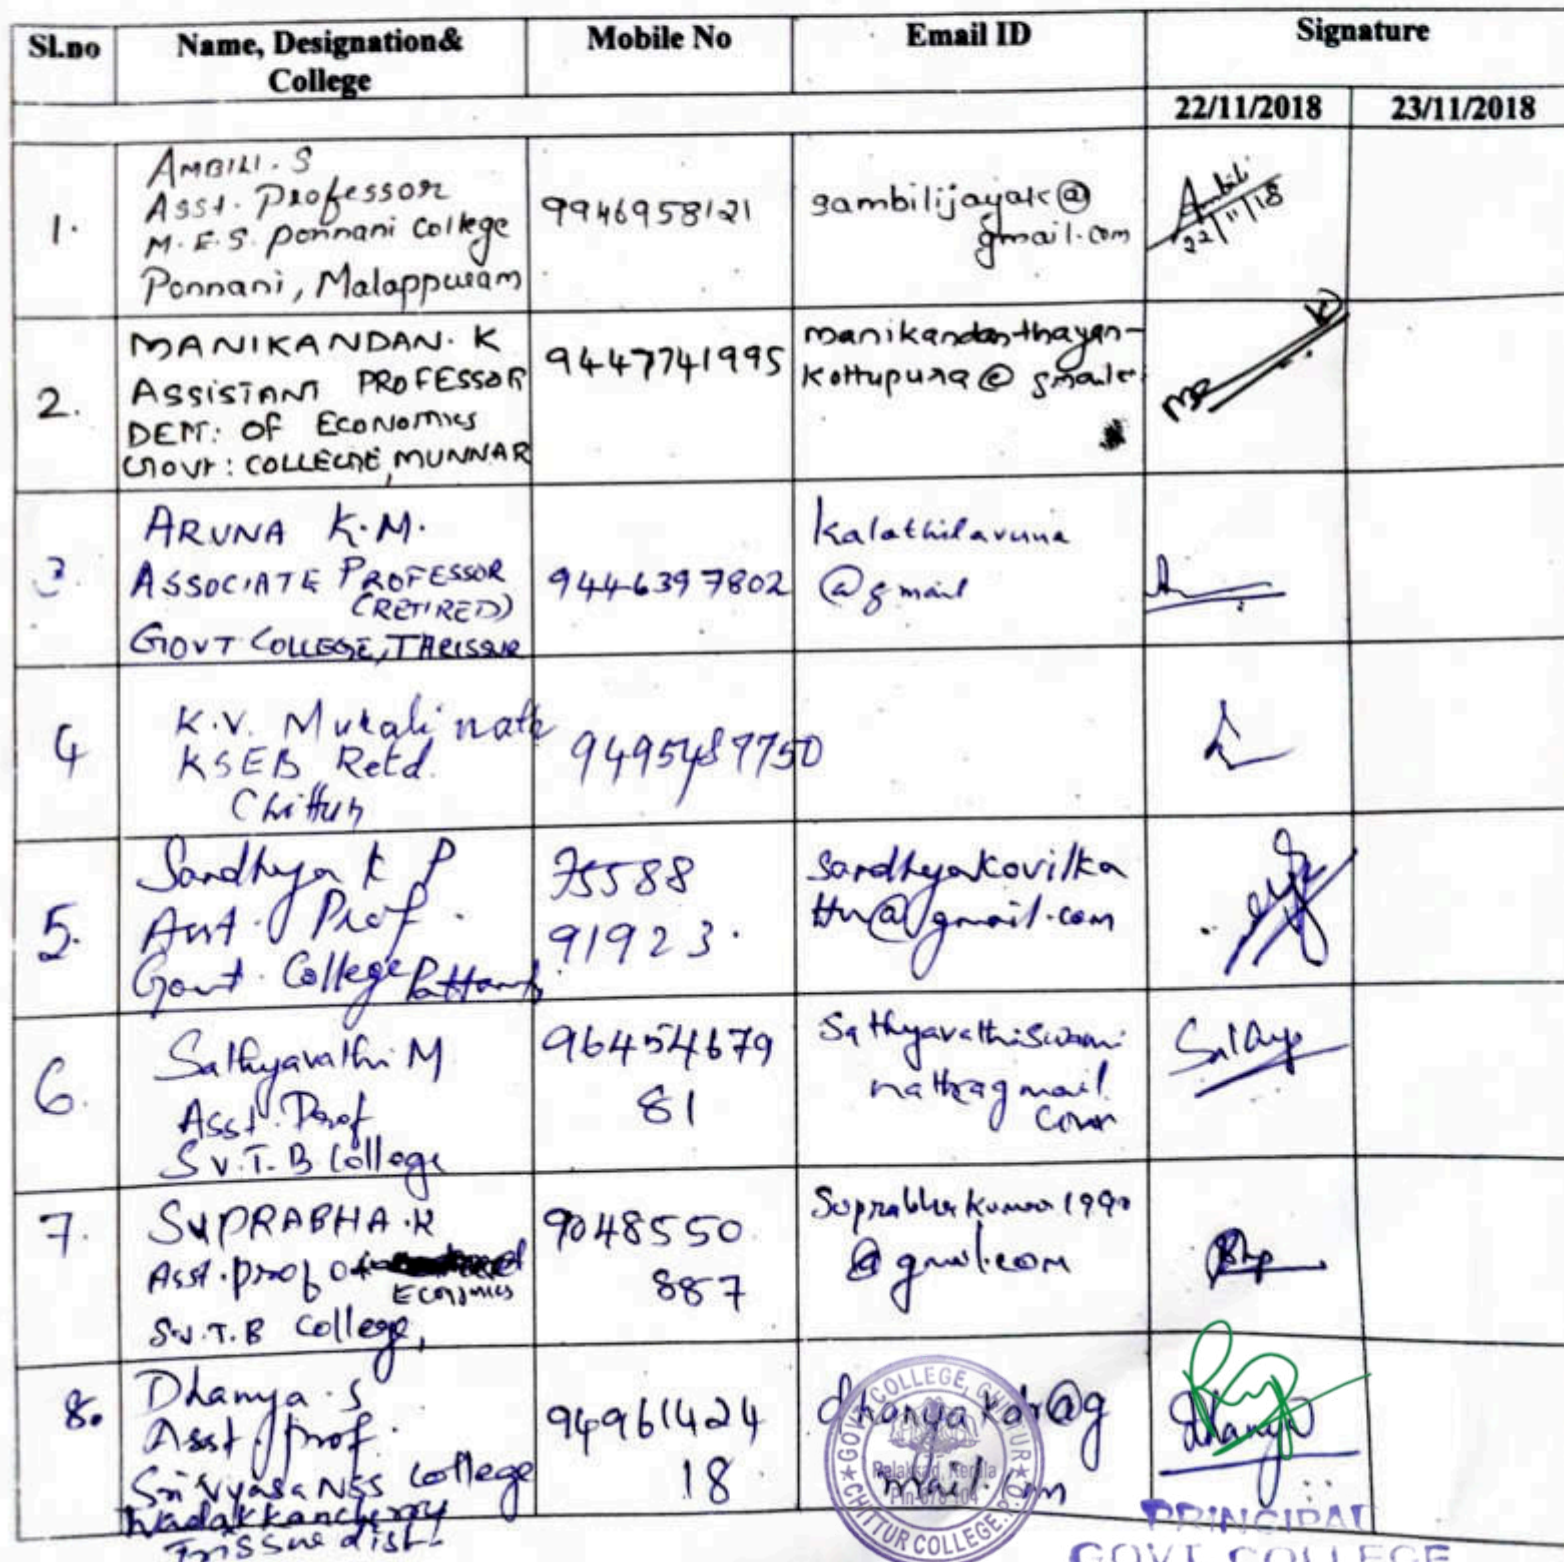 Sl.no Name, Designation& Mobile No Email ID Signature
College
22/11/2018 23/11/2018
1. AMBILI. S
Asst. Professor
M.E.S. Ponnani College
Ponnani, Malappuram
9946958121
sambilijayak@
gmail.com
Ambili
22/11/18
2. MANIKANDAN. K
ASSISTANT PROFESSOR
DEPT: OF ECONOMICS
GOVT: COLLEGE, MUNNAR
9447741995
manikandanthayan-
kottupura@
3. ARUNA K.M.
ASSOCIATE PROFESSOR
(RETIRED)
GOVT COLLEGE, THRISSUR
9446397802
kalathilaruna
@gmail
4 K.V. Muralinath
KSEB Retd.
Chittur
5. Sandhya K P
Asst. Prof.
Govt. College Pattambi
75588
91923.
sandhyakovilka
ttu@gmail.com
6. Sathyavathi M
Asst. Prof
S.V.T.B College
96454679
81
Sathyavathiswami
Sathya
7. SUPRABHA.K
Asst. prof of
Economics
S.V.T.B College,
9048550
887
@gmail.com
8. Dhanya. S
Asst. prof.
Sri Vyasa NSS College
Wadakkancherry
Trissur dist.
94961424
18
dhanyakar@g
mail.com
Dhanya
GOVT. COLLEGE, CHITTUR
Palakkad, Kerala
Pin-678 104
CHITTUR COLLEGE.P.O
PRINCIPAL
GOVT COLLEGE